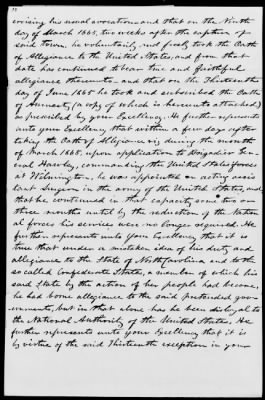 ercising his usual avocations and that on the Ninth
day of March 1865, two weeks after the capture of
said town, he voluntarily and freely took the Oath
of Allegiance to the United States, and from that
date has continued to bear true and faithful
allegiance thereunto - and that on the Thirteenth
day of June 1865 he took and subscribed the Oath
of Amnesty, (a copy of which is hereunto attached)
as prescribed by your Excellency. He further represents
unto your Excellency, that within a few days after
taking the Oath of Allegiance viz, during the month
of March 1865, upon application to Brigadier Gen-
eral Hawley, commanding the United States forces
at Wilmington, he was appointed an acting assis-
tant Surgeon in the army of the United States, and
that he continued in that capacity some two or
three months until by the reduction of the Nation-
al forces his services were no longer required. He
further represents unto your Excellency that it is
true that under a mistaken idea of his duty and
allegiance to the State of North Carolina and to the
so called Confederate States, a member of which his
said State by the action of her people had become,
he had borne allegiance to the said pretended gov-
ernments, but in that alone has he been disloyal to
the National Authority of the United States. He
further represents unto your Excellency that it is
by virtue of the said Thirteenth exception in your